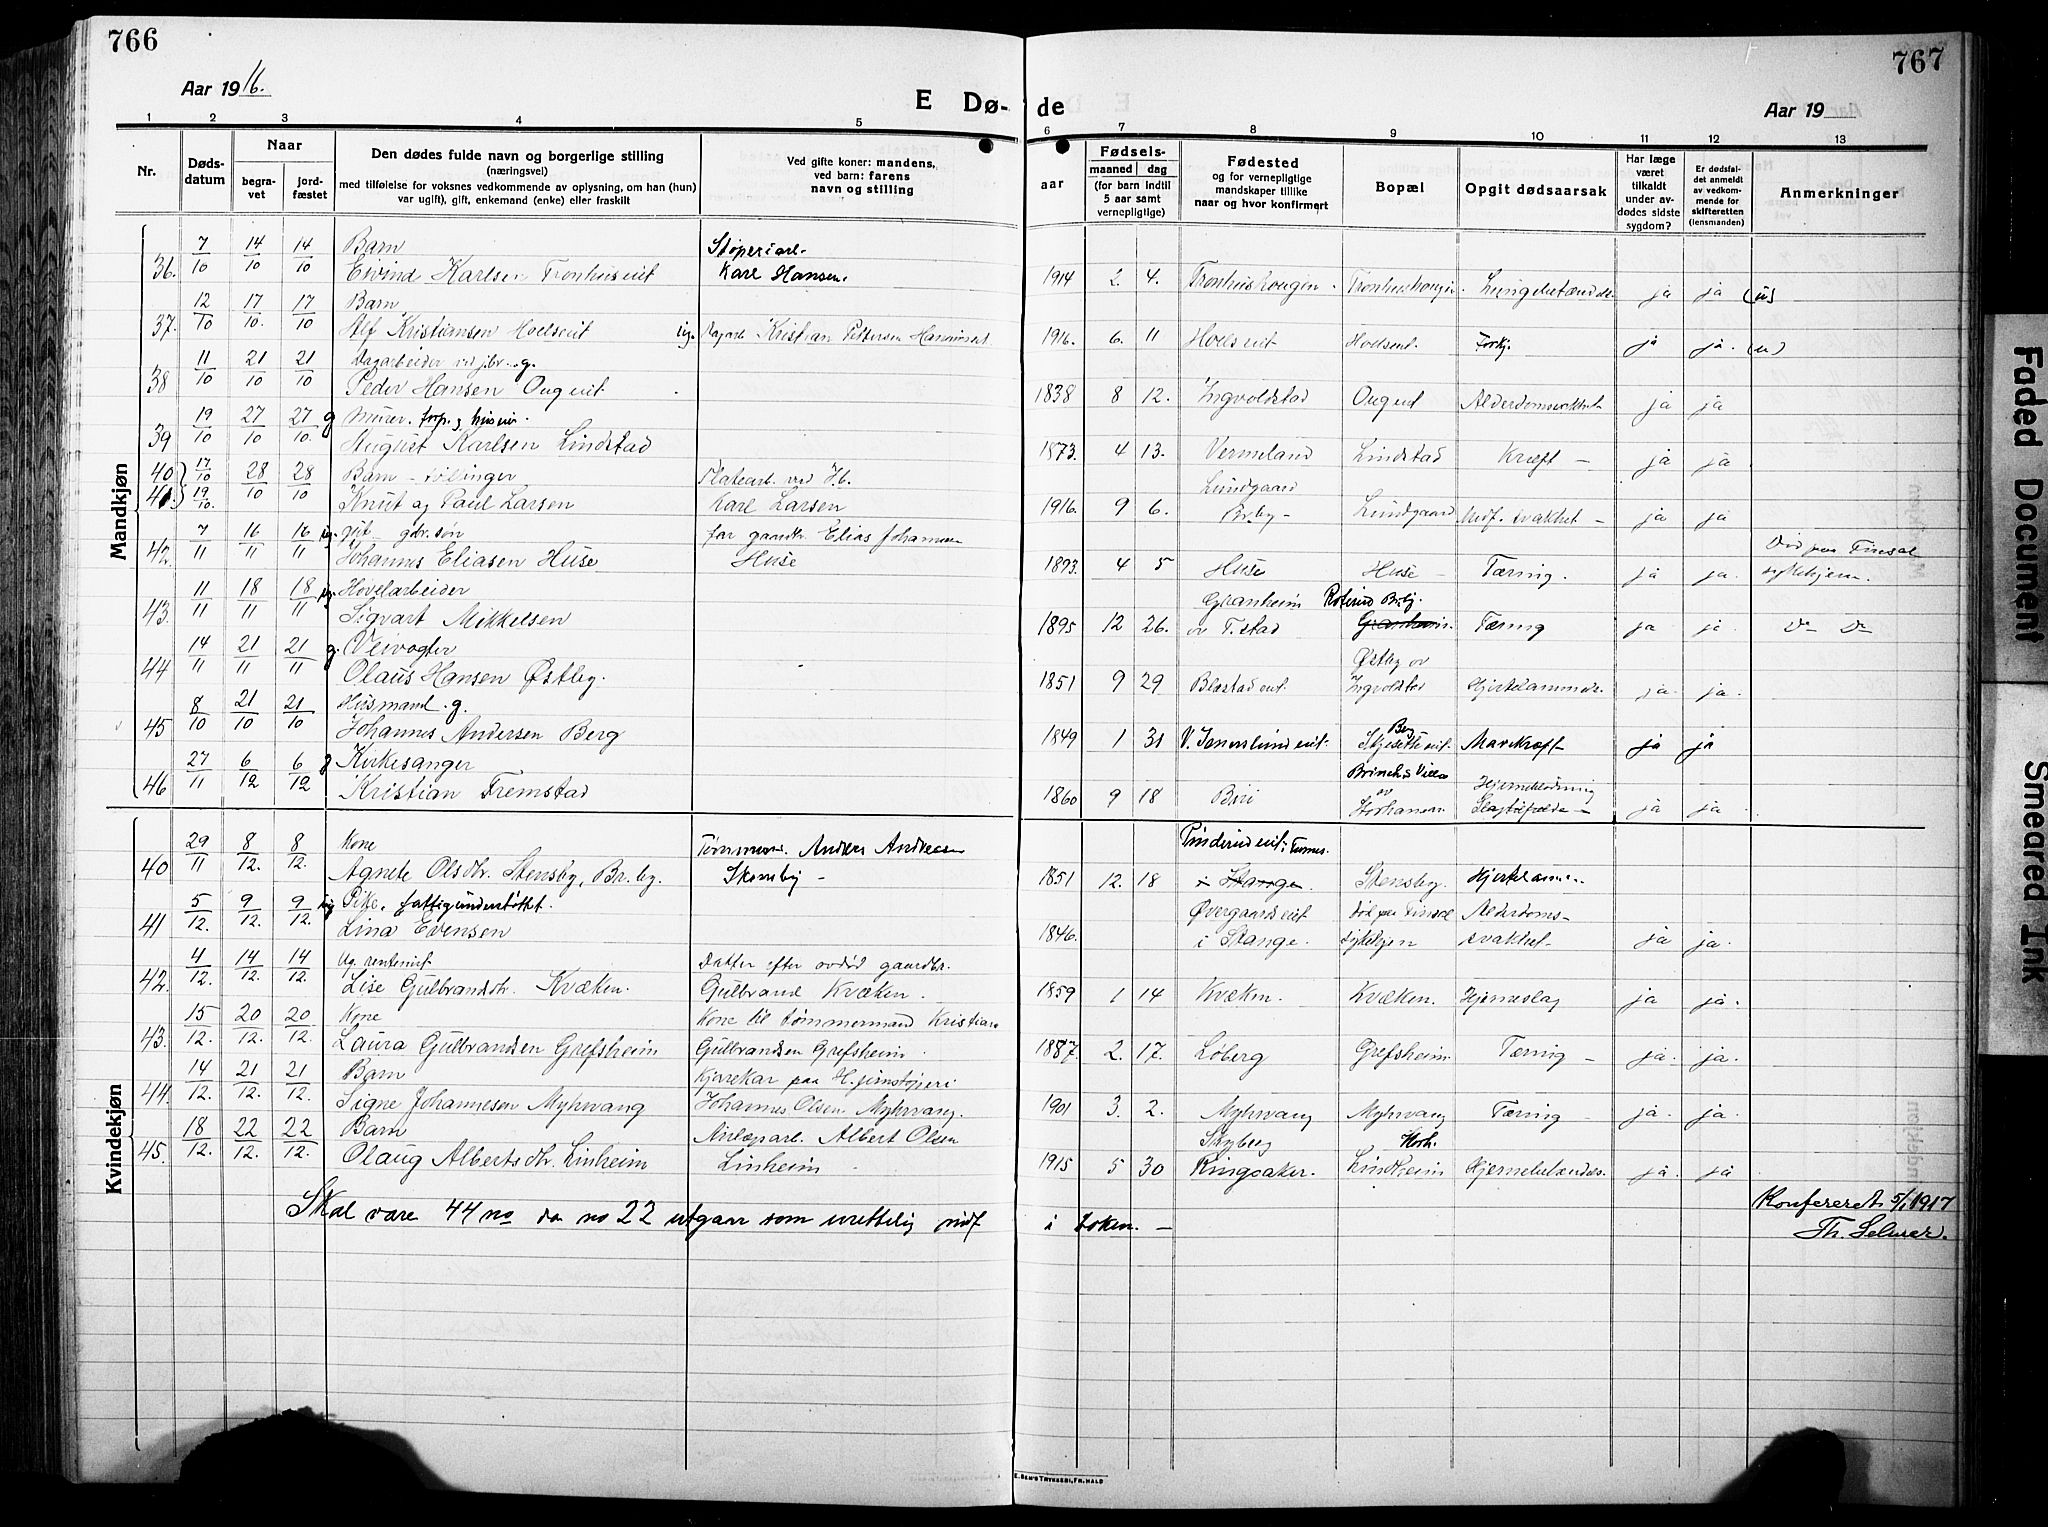 766
767
Aar 1916.
E Dø-
de
Aar 19
1 2 3 4 5 6 7 8 9 10 11 12 13
Nr.
Døds-
datum
Naar
begra-
vet
jord-
fæstet
Den dødes fulde navn og borgerlige stilling
(næringsvei)
med tilføielse for voksnes vedkommende av oplysning, om han (hun)
var ugift), gift, enkemand (enke) eller fraskilt
Ved gifte koner: mandens,
ved barn: farens
navn og stilling
aar
Fødsels-
maaned dag
(for barn indtil
5 aar samt
vernepligtige)
Fødested
og for vernepligtige
mandskaper tillike
naar og hvor konfirmert
Bopæl
Opgit dødsaarsak
Har læge
været
tilkaldt
under av-
dødes sidste
sygdom?
Er dødsfal-
det anmeldt
av vedkom-
mende for
skifteretten
(lensmanden)
Anmerkninger
Mandkjøn
7/10 14/10 14/10 Barn Støperiarb.
36. Eivind Karlsen Tronhuseiet Karl Hansen. 1914 2. 4. ja ja (u)
12/10 17/10 17/10 Barn
37. Alf Kristiansen Hoelseiet Kristian Pettersen 1916. 6. 11 Hoelseiet Hoelseiet ja ja. (u)
11/10 21/10 21/10 Dagarbeider ved j.br. g.
38 Peder Hansen Ougeiet 1838 8 12. Ingvoldstad ja ja
19/10 27/10 27/10 g Murer
39 August Karlsen Lindstad 1873. 4 13. Vermeland Lindstad Kræft — ja ja
40 17/10 28/10 28/10 Barn - tvillinger Lundgaard
41. 19/10. Knut og Paul Larsen Karl Larsen 1916. 9 6. Br.by - Lundgaard Medf. svakhet - ja ja
7/11 16/11 16/11 ug. gdr.søn far gaardbr. Elias Johannesen Død paa Finsal
42. Johannes Eliasen Huse Huse 1893. 4 5 Huse Huse Tæring. ja ja. sykehjem.
11/11 18/11 18/11 ug. Høvelarbeider Granheim Br.bj.
43. Sigvart Mikkelsen 1895 12 26. av T.stad Granheim. Tæring ja ja. Do Do
14/11 21/11 21/11 g. Veivogter Østby av
44 Olaus Hansen Østby. 1851 9 29 Blæstadeiet. ja. ja.
8/10 21/10 21/10 Husmand. g. Berg
45 Johannes Andersen Berg 1849 1 31 Mavekræft ja ja
27/11 6/12 6/12 g Kirkesanger Hjerneblødning
46 Kristian Fremstad 1860 9 18 Biri av Storhamar. Slagtilfælde - ja ja
Kvindekjøn
29/11 8/12. 8/12. Kone Tømmerm. Andreas Andreassen
40 Agnete Olsdtr. Stensby, Br.by. 1851 12. 18 i Stange. Stensby.
5/12. 9/12. 9/12. ug Pike, fattigunderstøttet. Øvergaardseiet Død paa Finsal Alderdoms-
41 Lina Evensen 1846. i Stange. sykehjem svakhet. ja ja.
4/12. 14/12. 14/12. Ug. rentenist. Datter efter avdød gaardbr.
42. Lise Gulbrandsdtr. Kvæken. Gulbrand Kvæken. 1859 1 14 Kvæken. Kvæken. Hjerneslag ja ja.
15/12. 20/12. 20/12. Kone Kone til tømmermand Kristian
43. Laura Gulbrandsen Grefsheim Gulbrandsen Grefsheim. 1887. 2. 17. Løberg Grefsheim. Tæring — ja. ja.
14/12. 21/12. 21/12. Barn Kjørekar paa H. jernstøperi
44. Signe Johannesen Myhrvang Johannes Olsen Myhrvang. 1901 3. 2. Myhrvang Myhrvang Tæring - ja. ja.
18/12. 22/12. 22/12. Barn Albert Olsen Skyberg
45. Olaug Albertsdtr. Linheim Linheim 1915 5 30 Ringsaker. Lindheim Hjernebetændelse. ja. ja
Skal være 44 no da no 22 utgaar som urettelig indf i boken. —
Konfereret 5/1 1917
Th. Selmer.
E. SEM'S TRYKKERI, FR.HALD
Faded Document
Smeared Ink